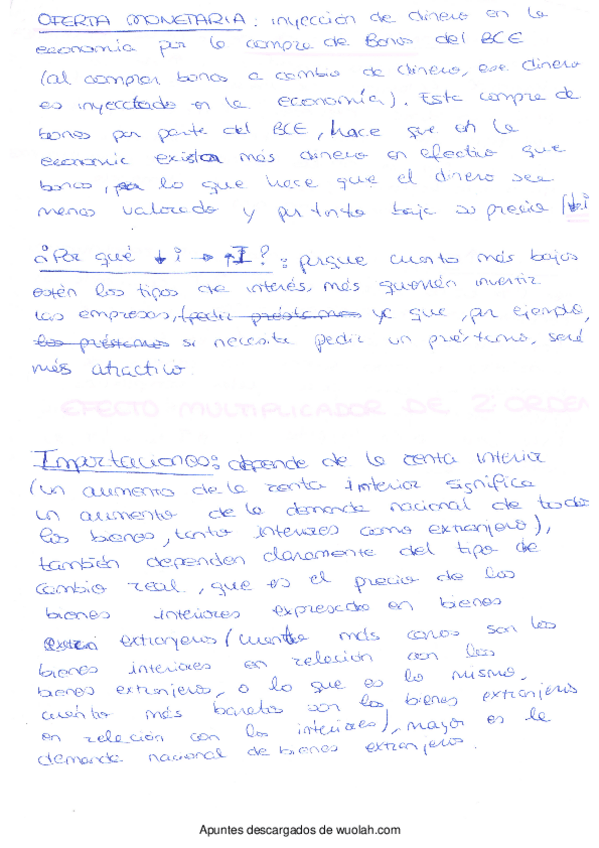 OFERTA MONETARIA: inyección de dinero en la
economía por la compra de Bonos del BCE
(al comprar bonos a cambio de dinero, ese dinero
es inyectado en la economía). Esta compra de
bonos por parte del BCE, hace que en la
economía exista más dinero en efectivo que
bonos, por lo que hace que el dinero sea
menos valorado y por tanto baja su precio (↓i
¿Por qué ↓i → ↑I?: porque cuanto más bajos
estén los tipos de interés, más querrán invertir
las empresas, (pedir préstamos ya que, por ejemplo,
los préstamos si necesita pedir un préstamo, será
más atractivo.
EFECTO MULTIPLICADOR DE 2º ORDEN
Importaciones: depende de la renta interior
(un aumento de la renta interior significa
un aumento de la demanda nacional de todos
los bienes, tanto interiores como extranjero),
también dependen claramente del tipo de
cambio real, que es el precio de los
bienes interiores expresado en bienes
extranjeros (cuanto más caros son los
bienes interiores en relación con los
bienes extranjero, o lo que es lo mismo,
cuánto más baratos son los bienes extranjeros
en relación con los interiores), mayor es la
demanda nacional de bienes extranjeros.
Apuntes descargados de wuolah.com